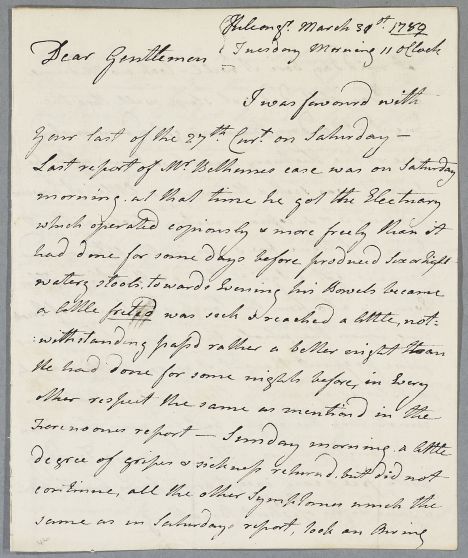 March 31st. 1789
Tuesday Morning 11 oClock
Dear Gentlemen
I was favourd with
Your last of the 27th Curt. on Saturday —
Last report of Mr. Belhames case was on Saturday
morning. at that time he got the Electuary
which operated copiously & more freely than it
had done for some days before produced Six or Eight
watery stools, towards Evening his Bowels became
a little freted was sick & reached a little, not-
:withstanding pass'd rather a better night than
He had done for some nights before, in Every
other respect the same as mentiond in the
Forenoones report — Sunday morning. a little
degree of gripes & sickness returnd. but did not
continue, all the other Symptomes much the
same as in Saturdays report, took an